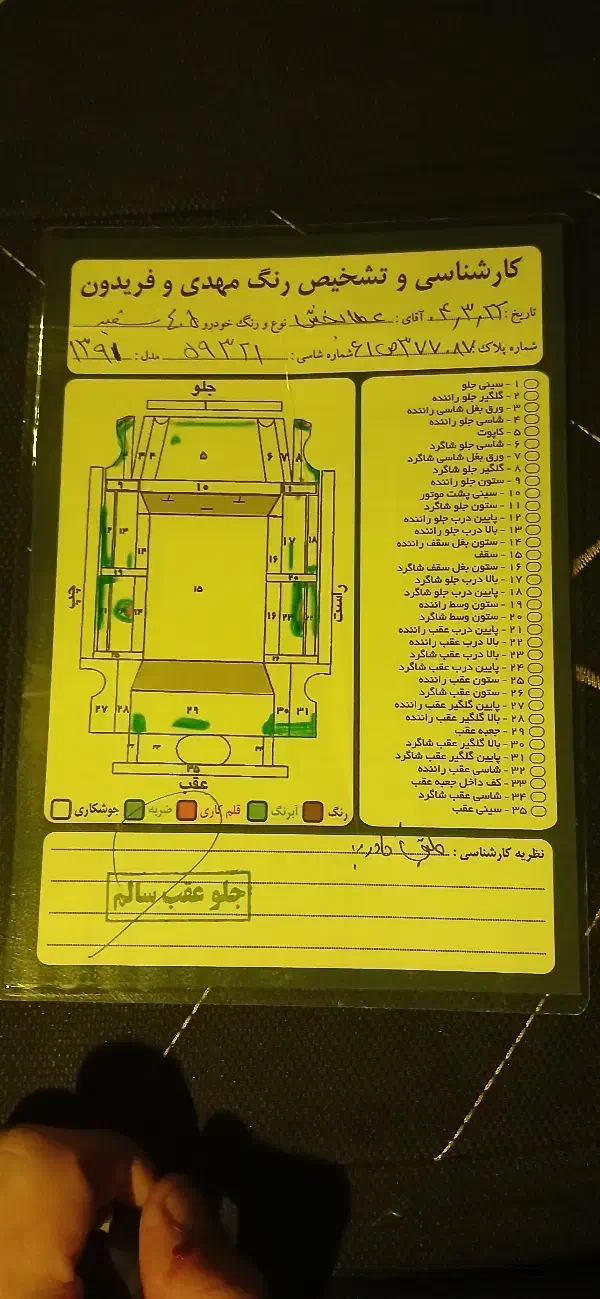 کارشناسی و تشخیص رنگ مهدی و فریدون
تاریخ: ۴٫۳٫۲۲ آقای: عطابخش نوع و رنگ خودرو ۴۰۵ سفید
شماره پلاک: شماره شاسی: ۵۹۳۲۱ مدل: ۱۳۹۱
۱ - سینی جلو
۲ - گلگیر جلو راننده
۳ - ورق بغل شاسی راننده
۴ - شاسی جلو راننده
۵ - کاپوت
۶ - شاسی جلو شاگرد
۷ - ورق بغل شاسی شاگرد
۸ - گلگیر جلو شاگرد
۹ - ستون جلو راننده
۱۰ - سینی پشت موتور
۱۱ - ستون جلو شاگرد
۱۲ - پایین درب جلو راننده
۱۳ - بالا درب جلو راننده
۱۴ - ستون بغل سقف راننده
۱۵ - سقف
۱۶ - ستون بغل سقف شاگرد
۱۷ - بالا درب جلو شاگرد
۱۸ - پایین درب جلو شاگرد
۱۹ - ستون وسط راننده
۲۰ - ستون وسط شاگرد
۲۱ - پایین درب عقب راننده
۲۲ - بالا درب عقب راننده
۲۳ - بالا درب عقب شاگرد
۲۴ - پایین درب عقب شاگرد
۲۵ - ستون عقب راننده
۲۶ - ستون عقب شاگرد
۲۷ - پایین گلگیر عقب راننده
۲۸ - بالا گلگیر عقب راننده
۲۹ - جعبه عقب
۳۰ - بالا گلگیر عقب شاگرد
۳۱ - پایین گلگیر عقب شاگرد
۳۲ - شاسی عقب راننده
۳۳ - کف داخل جعبه عقب
۳۴ - شاسی عقب شاگرد
۳۵ - سینی عقب
جلو
۱
۳ ۴ ۵ ۶ ۷ ۸
۹ ۱۰ ۱۱
۱۳ ۱۴ ۱۷ ۱۸
۱۶
چپ ۱۹ ۱۵ ۲۰ راست
۱۴ ۱۶
۲۵ ۲۶
۲۷ ۲۸ ۲۹ ۳۰ ۳۱
۳۵
عقب
رنگ آبرنگ قلم کاری ضربه جوشکاری
نظریه کارشناسی:
جلو عقب سالم